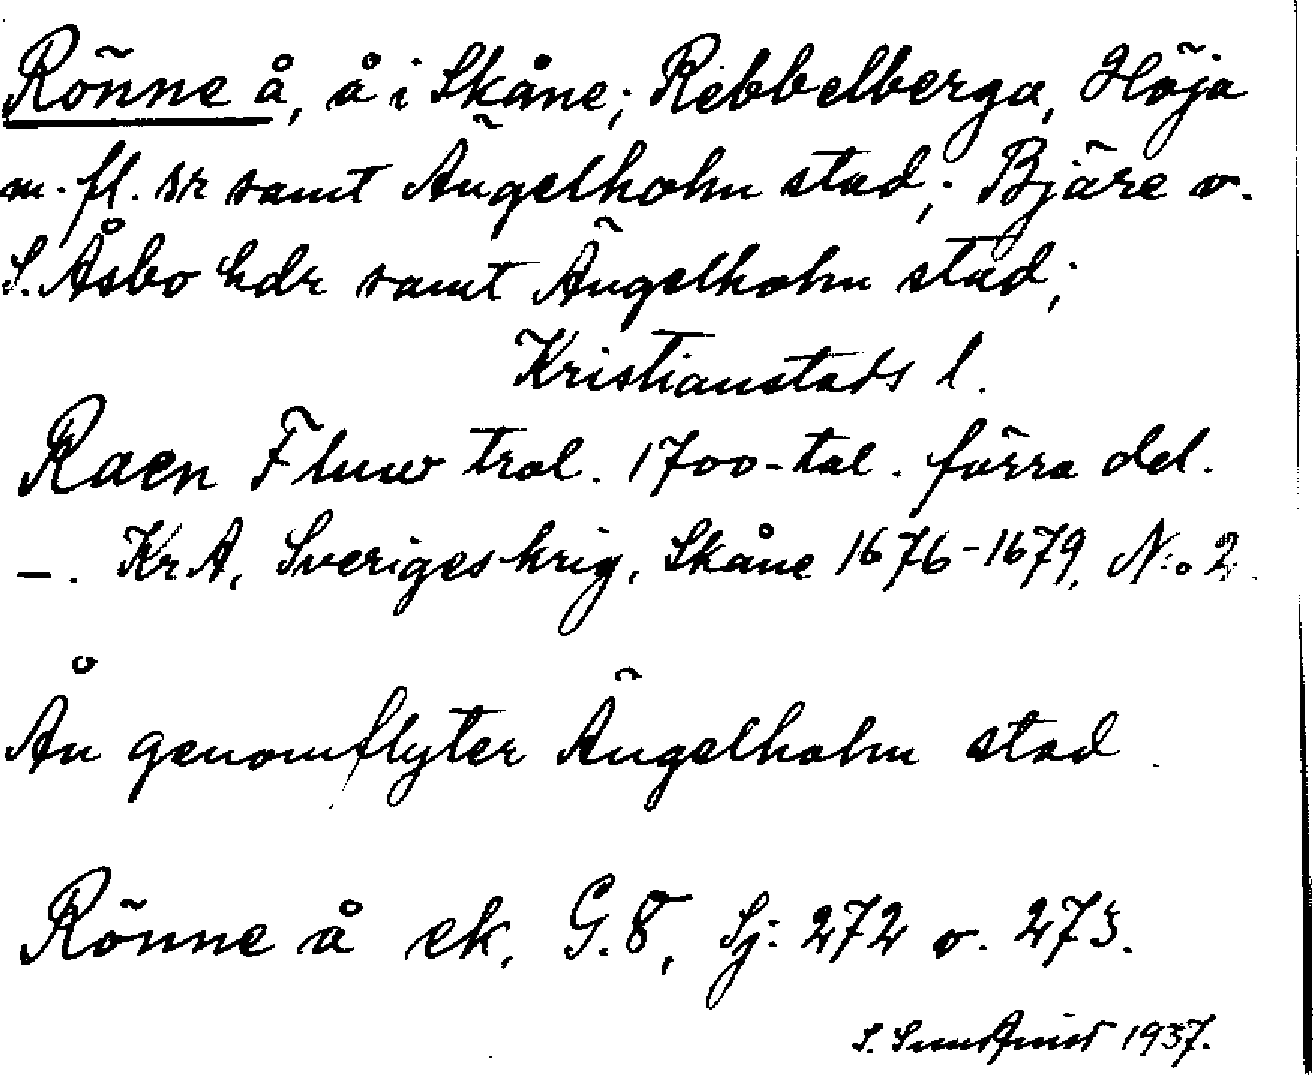 Rönne å, å i Skåne; Rebbelberga, Höja
m. fl. snr samt Ängelholm stad; Bjäre o.
S. Åsbo hdr samt Ängelholm stad;
Kristianstads l.
Raen Fluw trol. 1700-tal. förra del.
–. KrA, Sveriges krig, Skåne 1676-1679, N:o 2.
Ån genomflyter Ängelholm stad.
Rönne å ek. G.8, Sj: 272 o. 273.
S. Sundquist 1937.